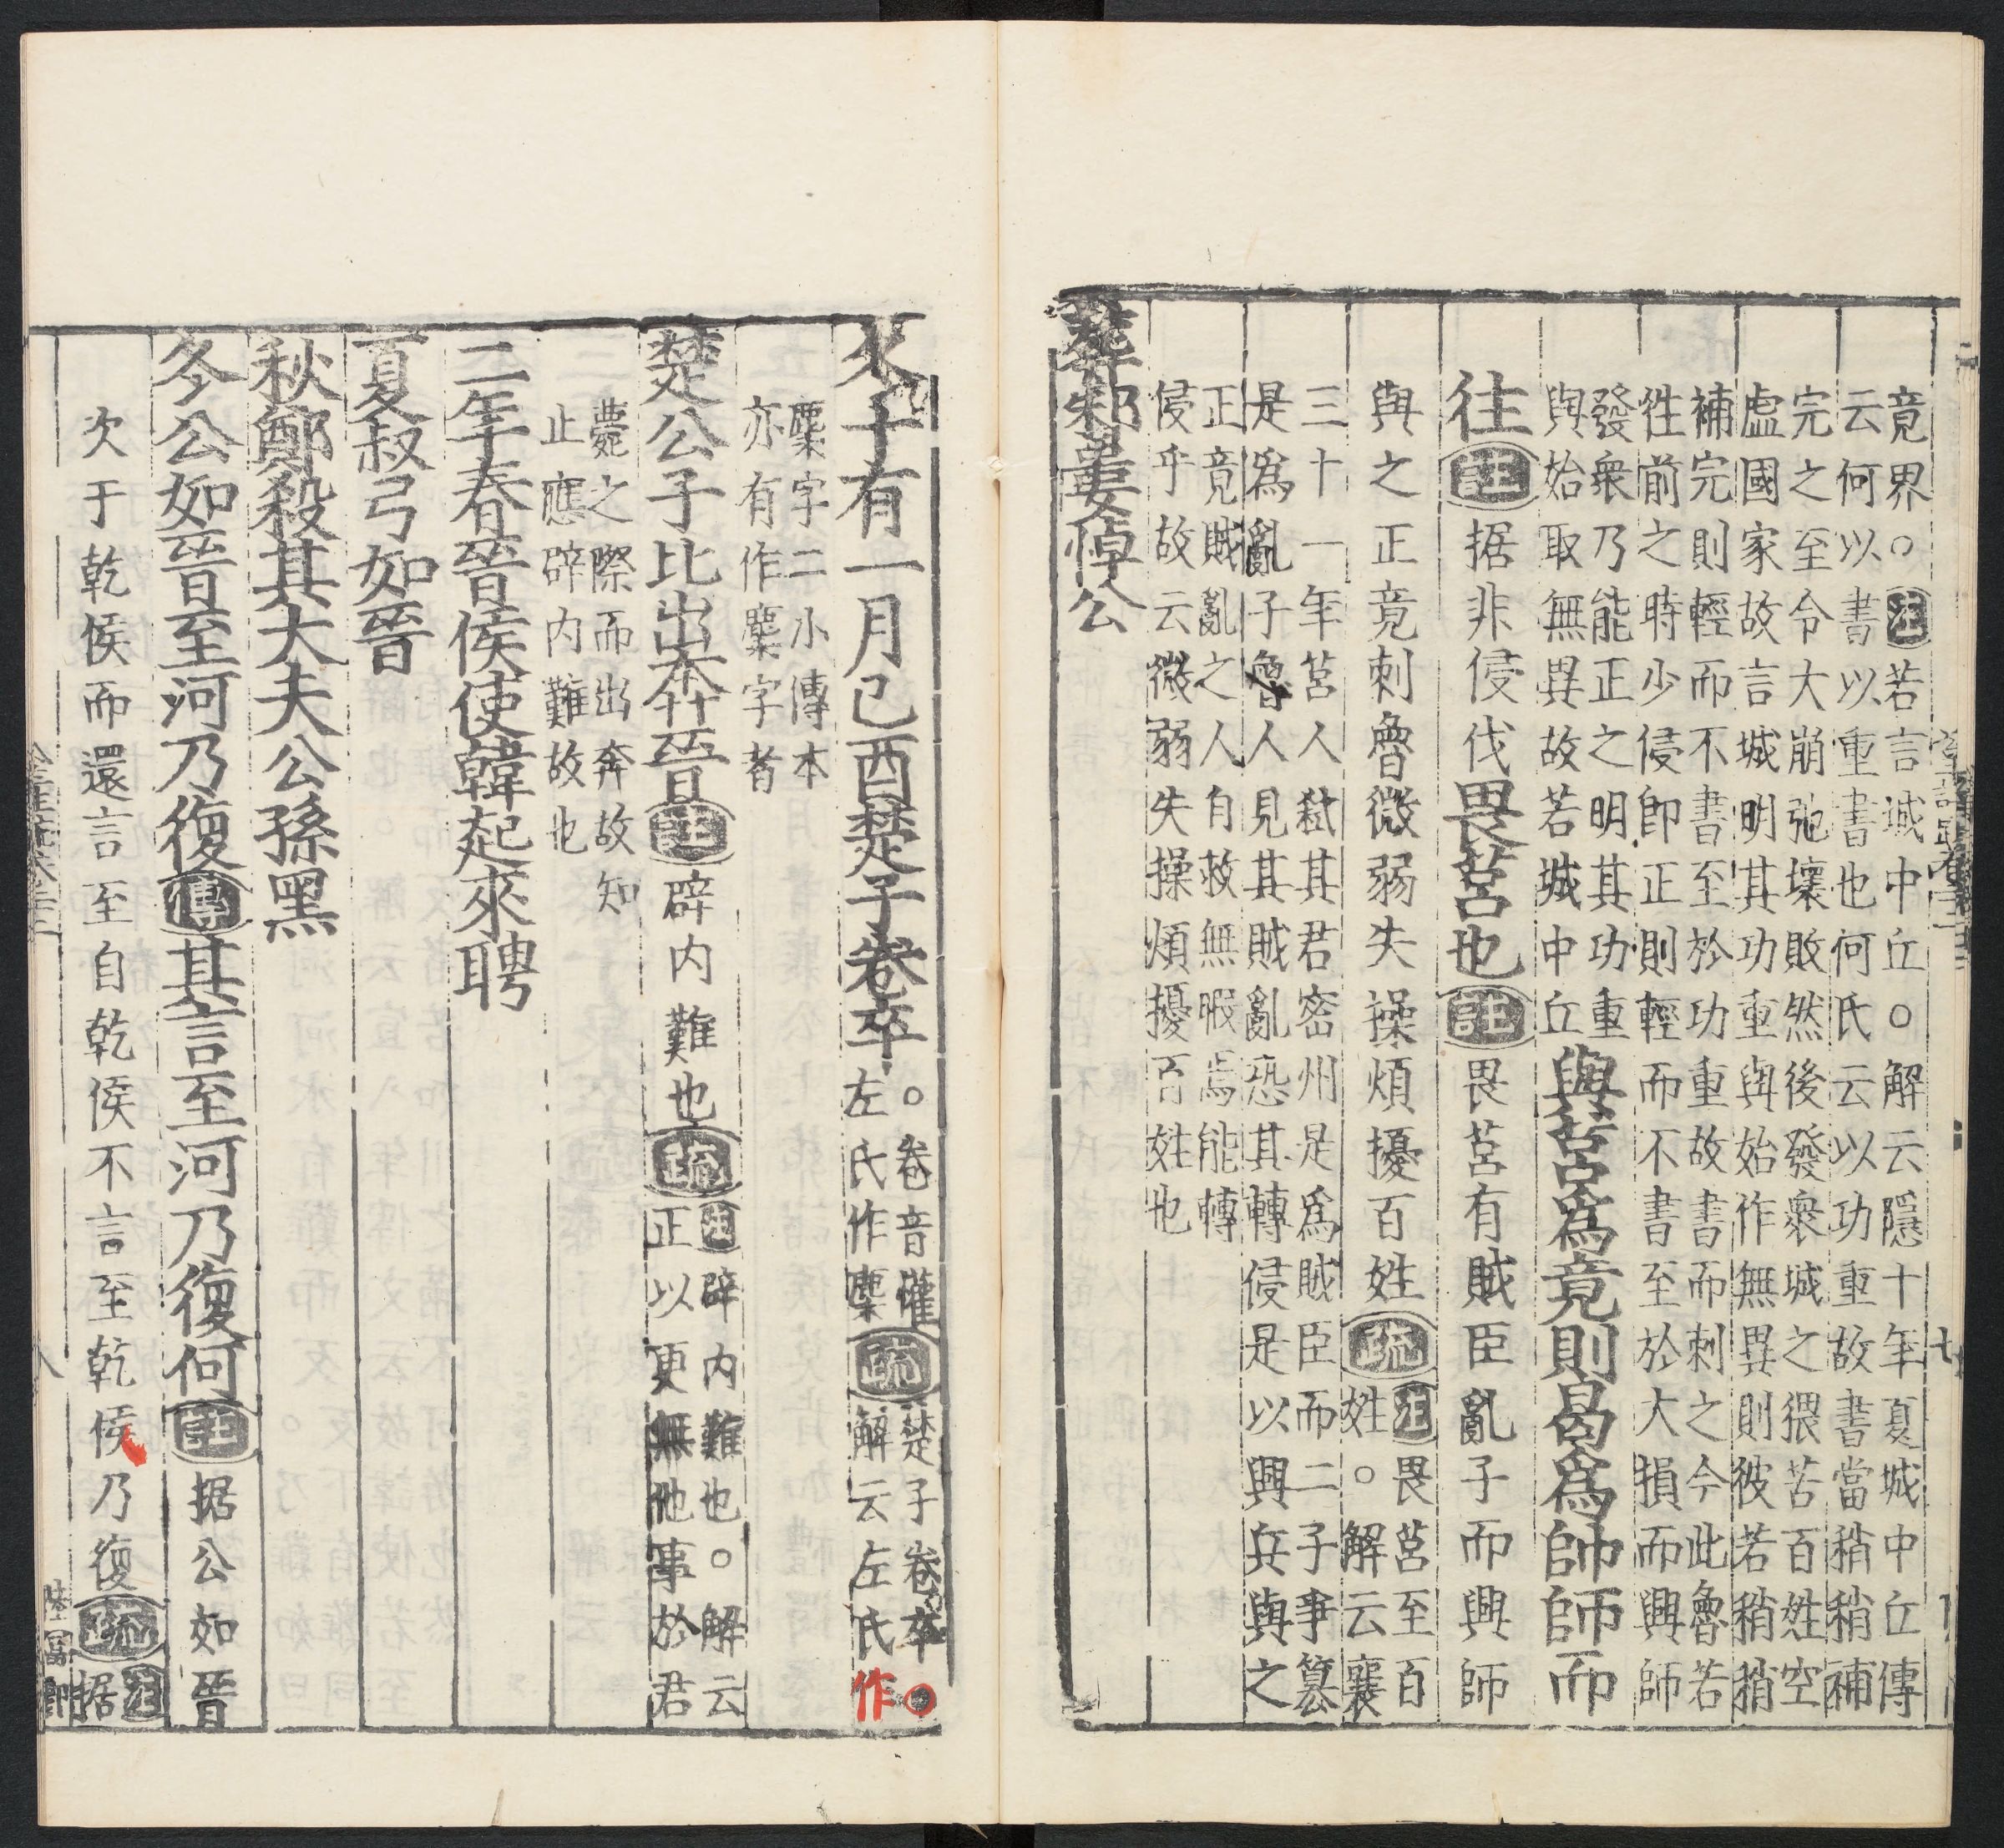 竟界○注若言城中丘○解云隱十年夏城中丘傳
云何以書以重書也何氏云以功重故書當稍稍補
完之至令大崩弛壞敗然後發衆城之猥苦百姓空
虛國家故言城明其功重與始作無異則彼若稍稍
補完則輕而不書至於功重故書而刺之今此魯若
徃前之時少侵即正則輕而不書至於大損而興師
發衆乃能正之明其功重
與始取無異故若城中丘
與莒爲竟則曷爲帥師而
往註据非侵伐畏莒也註畏莒有賊臣亂子而興師
與之正竟刺魯微弱失操煩擾百姓疏
注畏莒至百
姓○解云襄
三十一年莒人弒其君密州是爲賊臣而二子爭篡
是爲亂子魯人見其賊亂恐其轉侵是以興兵與之
正竟賊亂之人自救無暇焉能轉
侵乎故云微弱失操煩擾百姓也
葬邾婁悼公
冬十有一月已酉楚子卷卒
○卷音懽
左氏作麇
疏
楚子卷卒○
解云左氏作
麇字二小傳本
亦有作麇字者
楚公子比出奔晉註辟内難也疏
注辟内難也○解云
正以更無他事於君
薨之際而出奔故知
止應辟内難故也
二年春晉侯使韓起來聘
夏叔弓如晉
秋鄭殺其大夫公孫黑
冬公如晉至河乃復傳其言至河乃復何註据公如晉
次于乾侯而還言至自乾侯不言至乾侯乃復疏
注
据
七
八